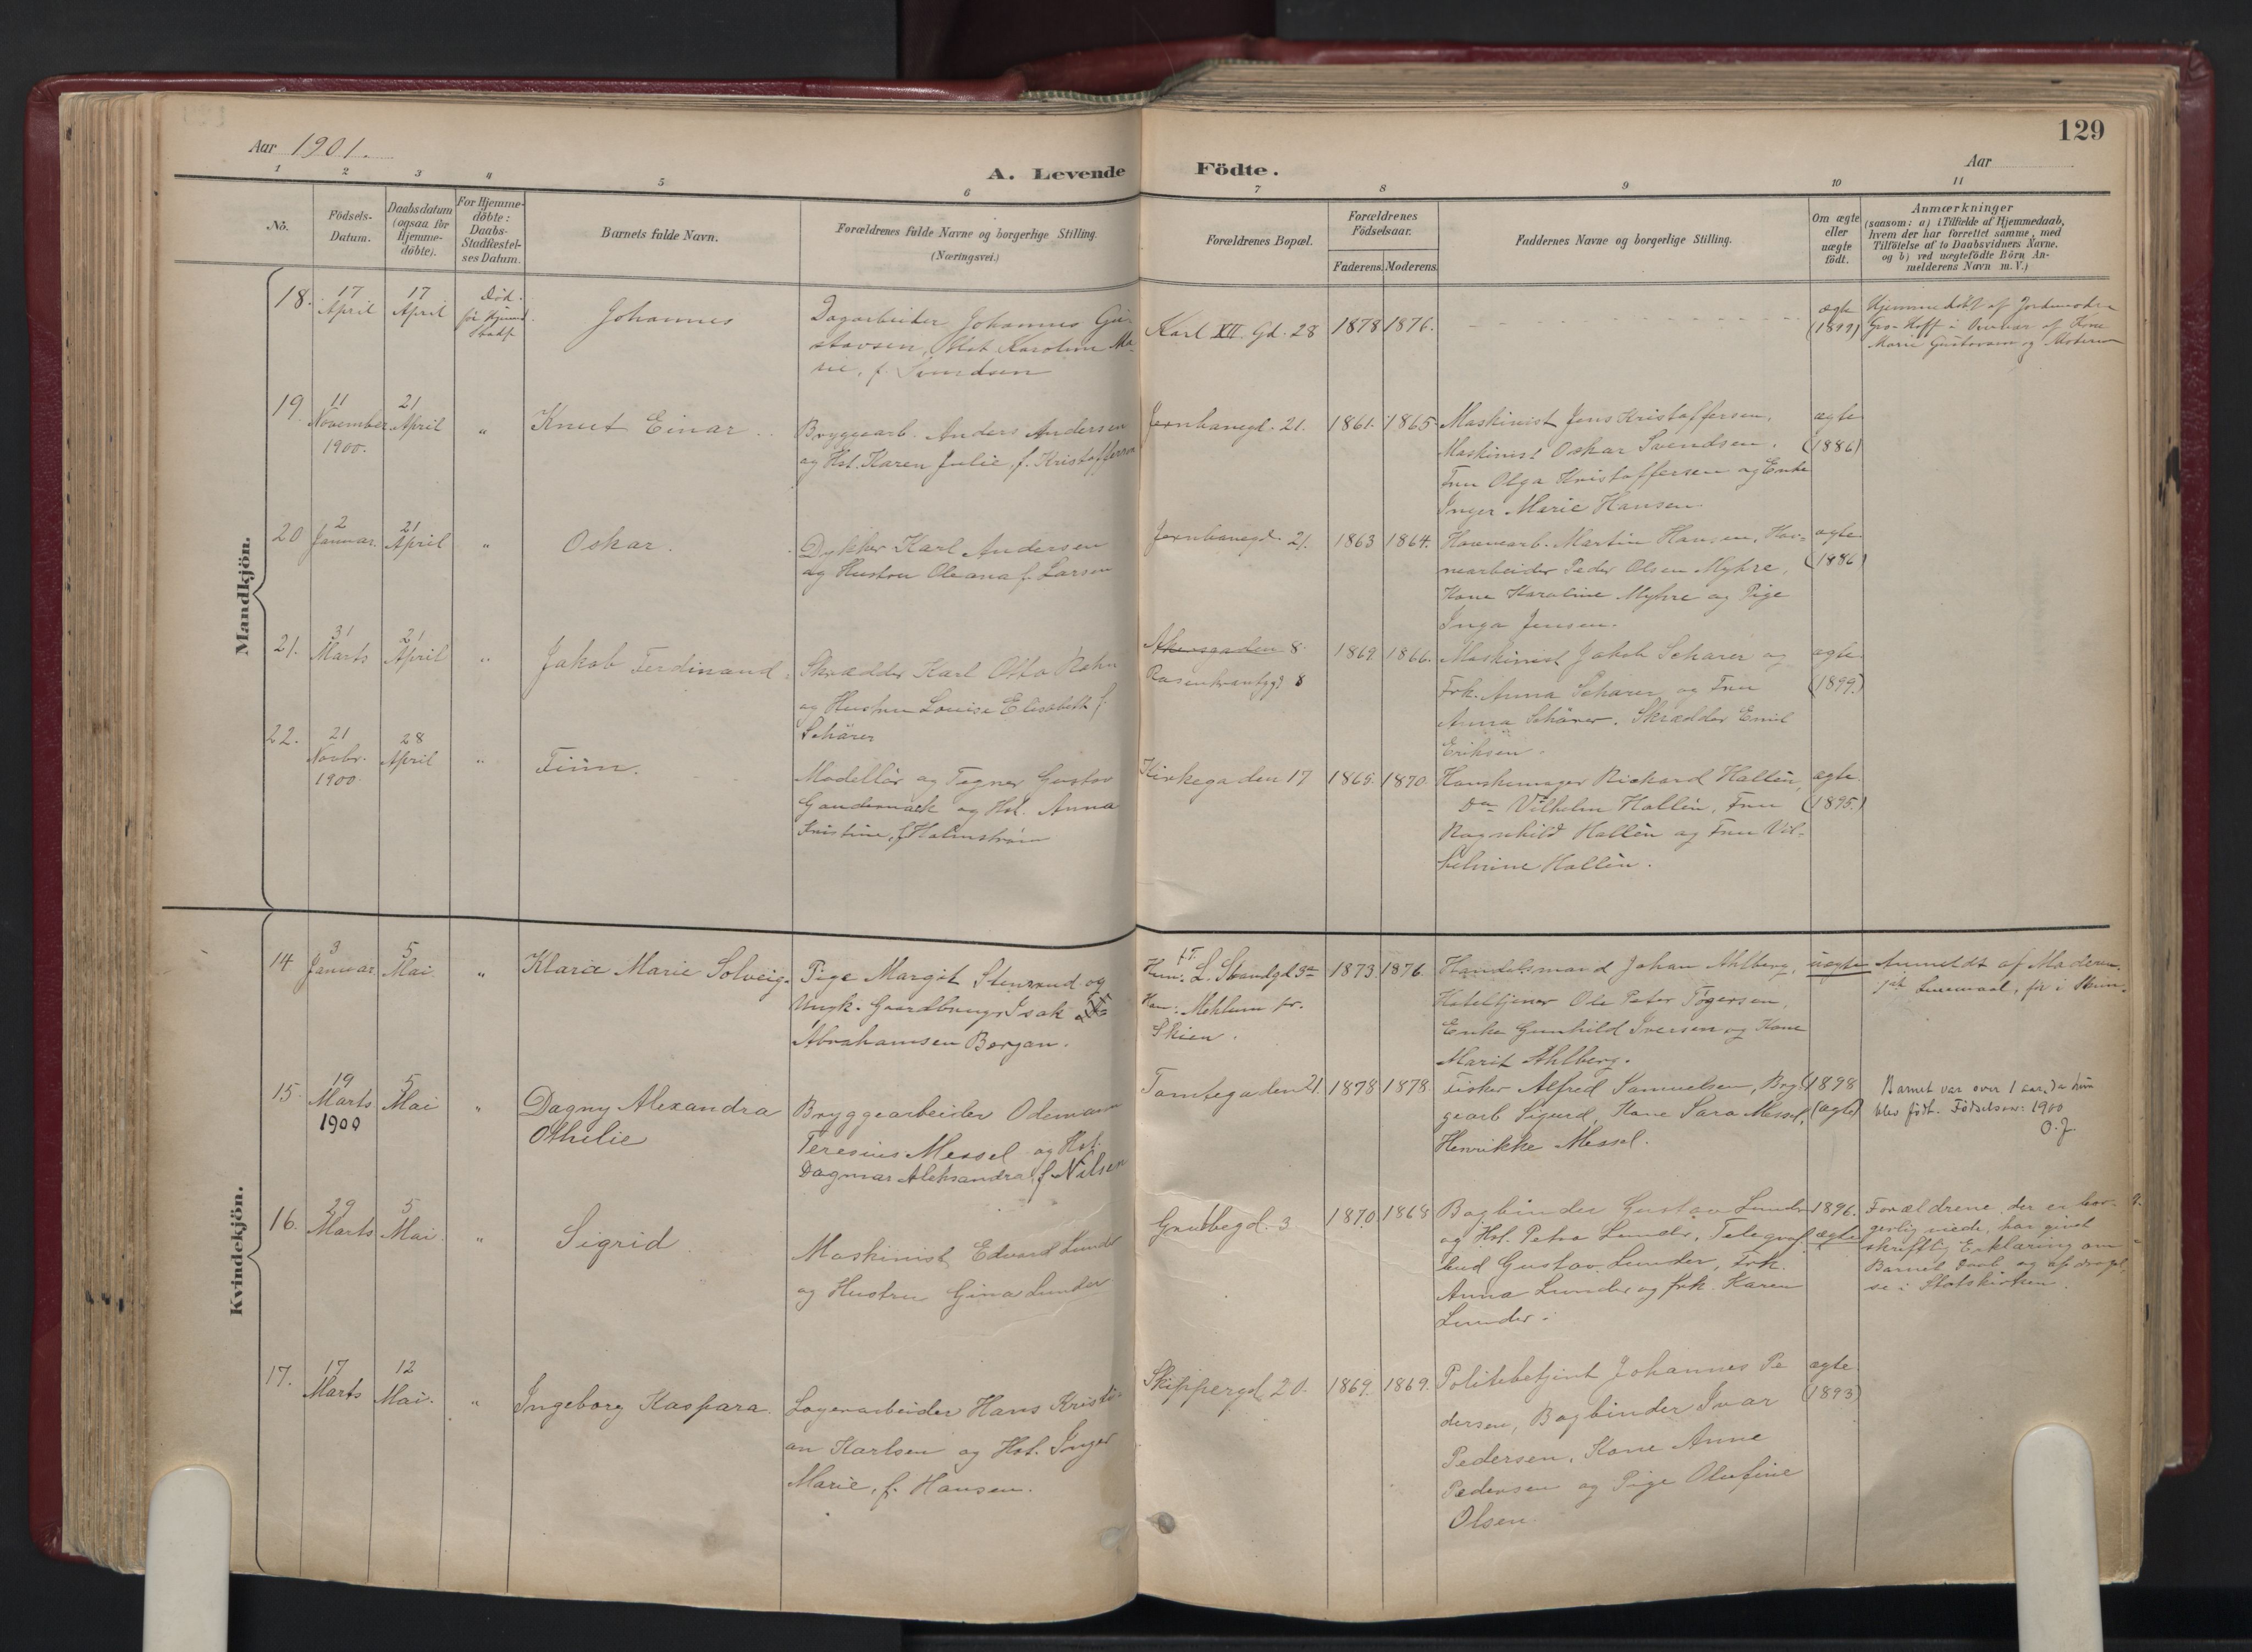 129
Aar 1901.
A. Levende Födte.
Aar
1 2 3 4 5 6 7 8 9 10 11
No.
Födsels-Datum.
Daabsdatum (ogsaa for Hjemme-döbte).
For Hjemme-döbte: Daabs-Stadfæstel-ses Datum.
Barnets fulde Navn.
Forældrenes fulde Navne og borgerlige Stilling.
(Næringsvei.)
Forældrenes Bopæl.
Forældrenes Födselsaar.
Faderens. Moderens.
Faddernes Navne og borgerlige Stilling.
Om ægte eller uægte födt.
Anmærkninger
(saasom: a) i Tilfælde af Hjemmedaab,
hvem der har forrettet samme, med
Tilföielse af to Daabsvidners Navne,
og b) ved uægtefödte Börn An-
melderens Navn m. V.)
Mandkjön.
18.
17 April
17 April
Död før Hjemd. Stadf.
Johannes
Dagarbeider Johannes Gu-
stavsen, Hst. Karoline Ma-
rie, f. Svendsen
Karl XII Gd. 28
1878 1876.
ægte
(1899)
Hjemmedöbt af Jordmoder
Gro Hoff i Overvær af Kone
Marie Gustavsen og Moderen
19.
11 November 1900.
21 April
"
Knut Einar
Bryggearb. Anders Andersen
og Hst. Karen Julie f. Kristoffersen
Jernbanegd. 21.
1861. 1865.
Maskinist Jens Kristoffersen,
Maskinist Oskar Svendsen,
Fru Olga Kristoffersen og Enke
Inger Marie Hansen
ægte
(1886)
20
2 Januar.
21 April
"
Oskar.
Dykker Karl Andersen
og Hustru Oleana f. Larsen
Jernbanegd. 21.
1863 1864.
Havnearb. Martin Hansen, Hav-
nearbeider Peder Olsen Myhre,
Kone Karoline Myhre og Pige
Inga Jensen.
ægte
(1886)
21.
31 Marts
21 April
"
Jakob Ferdinand
Skrædder Karl Otto Rahn
og Hustru Louise Elisabeth f.
Schärer
Akersgaden 8.
Rosenkrantzgd 8
1869. 1866.
Maskinist Jakob Schärer og
Frk. Anna Schärer og Fru
Anna Schärer. Skrædder Emil
Eriksen.
ægte
(1899.)
22.
21 Novbr. 1900.
28 April
"
Finn.
Modellör og Tegner Gustav
Gandernack og Hst. Anna
Kristine, f. Holmström
Kirkegaden 17
1865. 1870.
Hanskemager Rickard Hallén,
Do Vilhelm Hallén, Fru
Ragnhild Hallén og Fru Vil-
helmine Hallén.
ægte.
(1895.)
Kvindekjön.
14
3 Januar
5 Mai
"
Klara Marie Solveig.
Pige Margit Stenrud og
Ungk. Gaardbruger Isak
Abrahamsen Borgan.
Hun: L. Strandgd 3
Han: Mehlum pr.
Skien.
1873 1876.
Handelsmand Johan Ahlberg,
Hoteltjener Ole Peter Tøgersen,
Enke Gunhild Iversen og Kone
Marit Ahlberg.
uægte
Anmeldt af Moderen.
15.
19 Marts 1900
5 Mai
"
Dagny Alexandra
Othelie
Bryggearbeider Odemann
Teresius Messel og Hst.
Dagmar Aleksandra f. Nilsen
Tomtegaden 21.
1878 1878.
Fisker Alfred Samuelsen, Bryg-
gearb Sigurd, Kone Sara Messel,
Henrikke Messel.
1898
(ægte)
Barnet var over 1 aar, da hun
blev födt. Födselsaar: 1900
O.J.
16.
29 Marts
5 Mai
"
Sigrid
Maskinist Edvard Lunder
og Hustru Gina Lunder
Grubbegd. 3
1870 1868
Bogbinder Gustav Lunder
og Hst. Petra Lunder, Telegraf-
bud Gustav Lunder, Frk.
Anna Lunder og frk. Karen
Lunder.
1896.
ægte
Forældrene, der er bor-
gerlig viede, har givet
skriftlig Erklæring om
Barnets Daab og opdragel-
se i Statskirken.
17.
17 Marts
12 Mai.
"
Ingeborg Kaspara.
Lagerarbeider Hans Kristi-
an Karlsen og Hst. Inger
Marie, f. Hansen.
Skippergd. 20.
1869. 1869.
Politibetjent Johannes Pe
dersen, Bogbinder Ivar
Pedersen, Kone Anne
Pedersen og Pige Olufine
Olsen.
ægte
(1893)